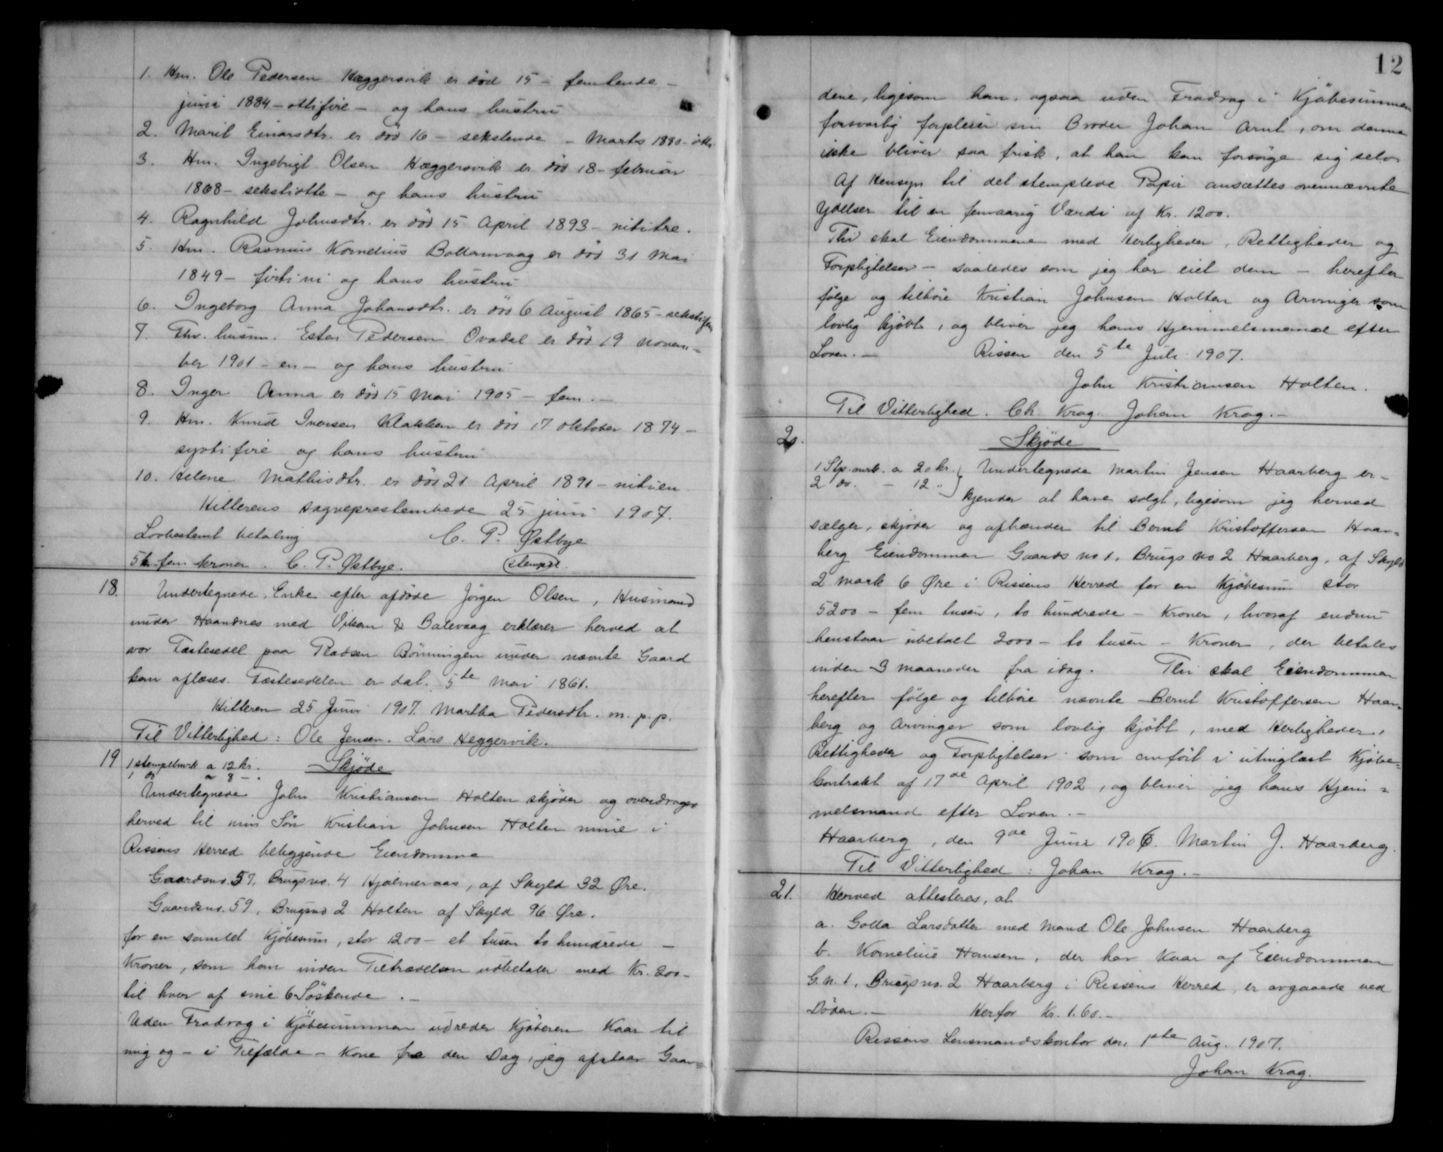 1. Hm. Ole Pedersen Hæggersvik er død 15 – femtende –
juni 1884 – ottifire – og hans hustru
2. Marit Einarsdtr. er død 16 – sekstende – Marts 1880 – otti
3. Hm. Ingebrigt Olsen Hæggersvik er død 18 – februar
1868 – sekstiotte – og hans hustru
4. Ragnhild Johnsdtr. er død 15 April 1893 – nititre.
5. Hm. Rasmus Kornelius Ballanvaag er død 31 Mai
1849 – førtini og hans hustru
6. Ingeborg Anna Johansdtr. er død 6 August 1865 – sekstifem
7. Hm. Esten Pedersen Ovadal er død 19 novem-
ber 1901 – en – og hans hustru
8. Inger Anna er død 15 Mai 1905 – fem. –
9. Hm. Knud Iversen Klakken er død 17 oktober 1874 –
syttifire og hans hustru
10. Helene Mathisdtr. er død 21 April 1891 – nitien
Hitterens sogneprestembede 25 juni 1907.
Lovbestemt betaling C. P. Østbye
5 k. fem kroner. C. P. Østbye. (stempel).
18. Undertegnede, Enke efter afdøde Jörgen Olsen, Husmand
under Haandnes med Ulsan & Balevaag erklærer herved at
vor Fæstesedel paa Pladsen Rönningen under nævnte Gaard
kan aflæses. Fæstesedelen er dat. 5te Mai 1861.
Hitteren 25 Juni 1907. Martha Pedersdtr. m. p. p.
Til Vitterlighed: Ole Jensen. Lars Heggervik.
19 1 stempelmrk a 12 kr. Skjøde
1 do a 8 – .
Undertegnede John Kristiansen Holten skjøder og overdrager
herved til min Søn Kristian Johnsen Holten mine i
Rissens Herred beliggende Eiendomme
Gaardsno. 57, Brugsno. 4 Hjælmeraas, af Skyld 32 Øre.
Gaardsno. 59, Brugsno 2 Holten af Skyld 96 Øre.
for en samlet Kjöbesum, stor 1200 – et tusen to hundrede –
Kroner, som han inden Tiltrædelsen udbetaler med Kr. 200 –
til hver af sine 6 Söskende. –
Uden Fradrag i Kjöbesummen udreder Kjöberen Kaar til
mig og – i Tilfælde – Kone fra den Dag, jeg afstaar Gaar=
12
dene, ligesom han, ogsaa uden Fradrag i Kjöbesummen
forsvarlig forpleier sin Broder Johan Arnt, om denne
ikke bliver saa frisk, at han kan forsörge sig selv.
Af Hensyn til det stemplede Papir ansættes ovennævnte
Ydelser til en femaarig Værdi af Kr. 1200.
Thi skal Eiendommene med Herligheder, Rettigheder og
Forpligtelser – saaledes som jeg har eiet dem – herefter
følge og tilhöre Kristian Johnsen Holten og Arvinger som
lovlig kjöbt, og bliver jeg hans Hjemmelsmand efter
Loven. – Rissen den 5te Juli 1907.
John Kristiansen Holten.
Til Vitterlighed. Ch. Krog. Johan Krog. –
20. Skjøde
1 Stp. mrk. a 20 kr. Undertegnede Martin Jensen Haarberg er-
2 do. – 12 „ kjender at have solgt, ligesom jeg herved
sælger, skjøder og afhænder til Bernt Kristoffersen Haar=
berg Eiendommen Gaards no 1, Brugs no 2 Haarberg, af Skyld
2 mark 6 Øre i Rissens Herred for en Kjøbesum stor
5200 – fem tusen, to hundrede – Kroner, hvoraf endnu
henstaar ubetalt 2000 – to tusen – Kroner, der betales
inden 3 maaneder fra idag. Thi skal Eiendommen
herefter følge og tilhöre nævnte Bernt Kristoffersen Haar=
berg og Arvinger som lovlig kjöbt, med Herligheder,
Rettigheder og Forpligtelser som anfört i utinglæst Kjöbe=
kontrakt af 17de April 1902, og bliver jeg hans Hjem=
melsmand efter Loven. –
Haarberg, den 9de Juni 1906. Martin J. Haarberg.
Til Vitterlighed: Johan Krog. –
21. Herved attesteres, at
a. Golla Larsdatter med Mand Ole Johnsen Haarberg
b. Kornelius Hansen, der har Kaar af Eiendommen
G. n. 1, Brugsno. 2 Haarberg i Rissens Herred, er avgaaede ved
Döden. – Herfor Kr. 1.60. –
Rissens Lensmandskontor den 1ste Aug. 1907.
Johan Krog.